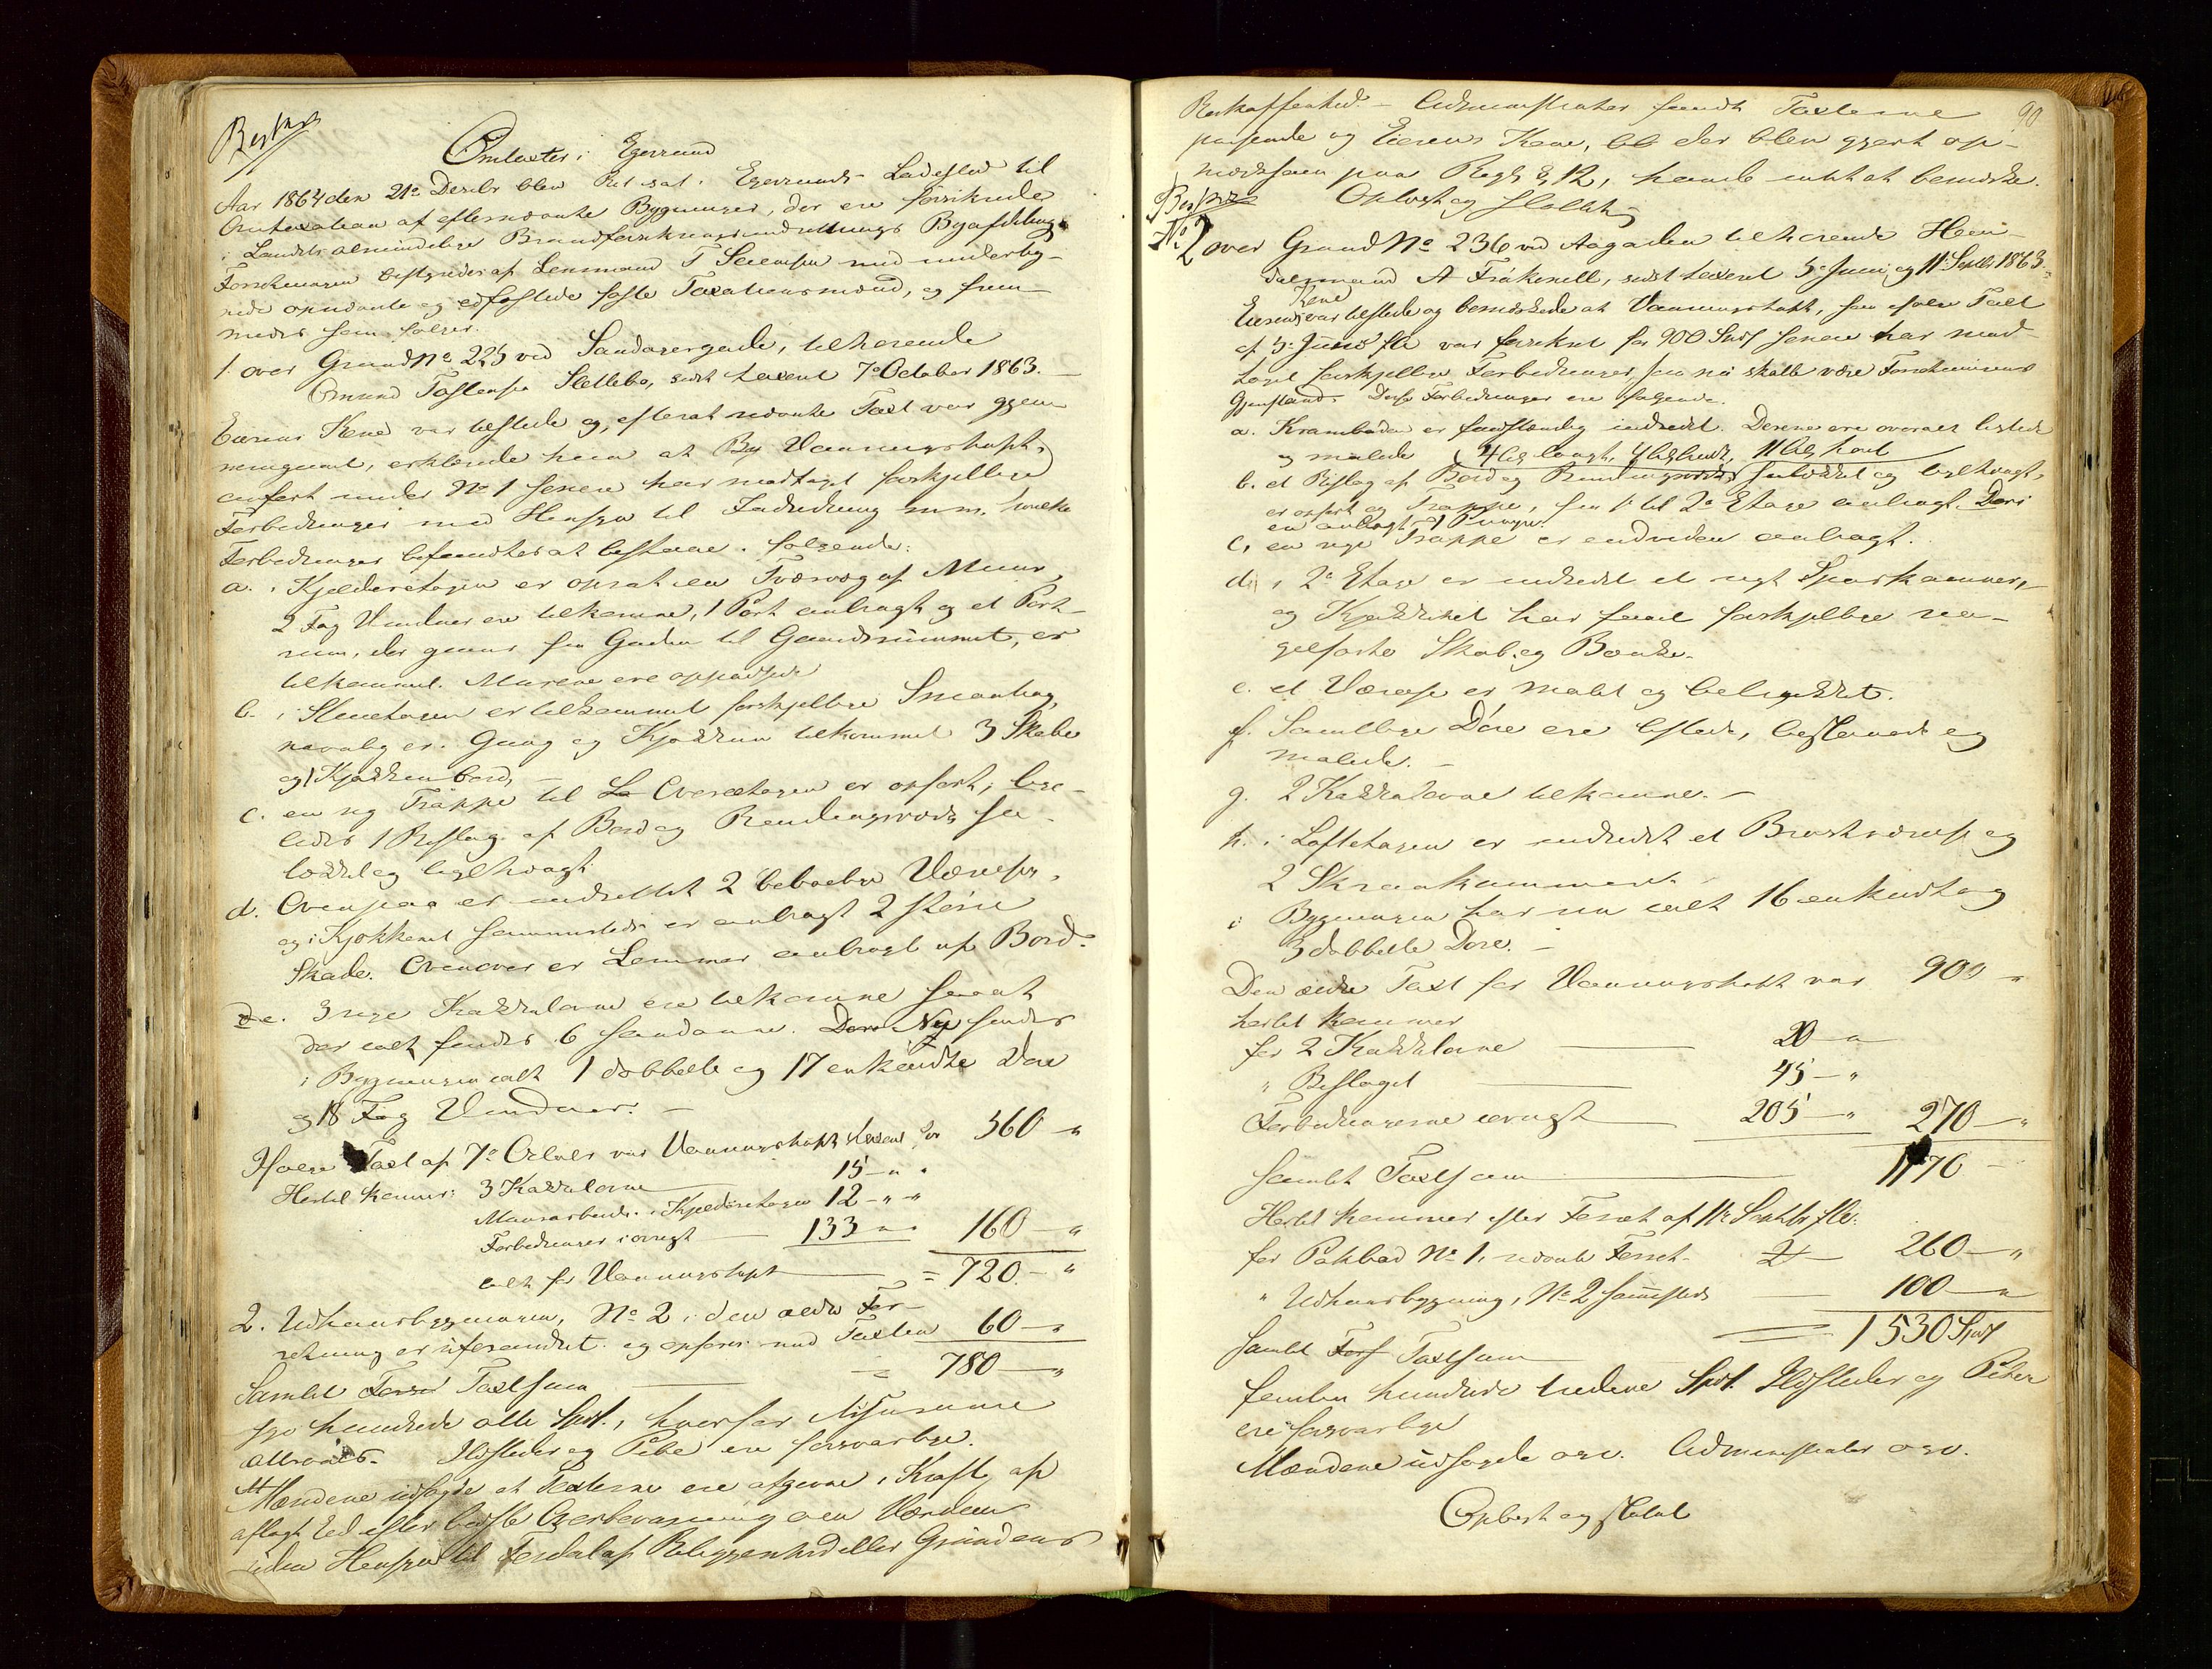 Omtaxter i Egersund
Aar 1864 den 21de Decbr blev Ret sat i Egersunds Ladested til
Omtaxation af efternævnte Bygninger, der ere forsikrede
i Landets almindelige Brandforsikringsindretnings Byafdeling.
Forretningen bestyredes af Lensmand T Svensen med underteg-
nede opnævnte og edfæstede faste Taxationsmænd, og frem-
medes som følger.
1. over Grund No 225 ved Sandagergade, tilhørende
Omund Tostensen Sletlebø, sidst taxeret 7de October 1863.
Eierens Kone var tilstede og, efterat nævnte Taxt var gjen-
nemgaaet, erklærede hun at By Vaaningshuset,
anført under No 1 senere har modtaget forskjellige
Forbedringer med Hensyn til Indredning m.m. hvilke
Forbedringer befandtes at bestaae i følgende:
a. i Kjelderetagen er opsat en Tværvæg af Muur,
2 Fag Vinduer ere tilkomne, 1 Port anbragt og et Port-
rum, der gaaer fra Gaden til Gaardsrummet, er
tilkommet. Murene ere oppudsede
b. i Stueetagen er tilkommet forskjellige Smaating,
navnlig er i Gang og Kjøkken tilkommet 3 Skabe
og 1 Kjøkkenbord,
c. en ny Trappe til Lo Overetagen er opført, lige-
ledes 1 Bislag af Bord og Bindingsværk pa-
lokket og tegltægt.
d. Ovenpaa er indrettet 2 beboelige Værelser,
og i Kjøkkenet sammesteds er anbragt 2 større
Skabe. Ovenover er Lemmer anbragt af Bord.
De. 3 nye Kakkelovne ere tilkomne saa at
der ialt findes 6 saadanne. Døre Nu findes
i Bygningen ialt 1 dobbelt og 17 enkeldte Døre
og 18 Fag Vinduer. –
Ifølge Taxt af 7de Octobr var Vaaningshuset taxeret for 560 – "
Hertil kommer: 3 Kakkelovne 15 – "
Muurarbeide i Kjelderetagen 12 – " "
Forbedringer iøvrigt 133 – " 160 – "
ialt for Vaaningshuset = 720 – "
2. Udhuusbygningen, No 2 i den ældre For-
retning er uforandret og opføres med Taxten 60 – "
Samlet Forret Taxtsum = 780 – "
syv hundrede otti Spd.,
Ildsteder og Piber ere forsvarlige.
Mændene udsagde at Taxterne ere afgivne i Kraft af
aflagt Eed efter bedste Overbeviisning om Værdien
uden Hensyn til Fordel af Beliggenhed eller Grundens
90
Beskaffenhed. – Administrator fandt Taxterne
passende og Eierens Kone, bl der blev gjort op-
mærksom paa Regl § 12, havde intet at bemærke.
Oplæst og sluttet
No 2 over Grund No 236 ved Aagaden tilhørende Han-
delsmand A Frøkenell, sidst taxeret 5te Juni og 11te Septbr 1863.
Eierens Kone var tilstede og bemærkede at Vaaningshuset, som ifølge Taxt
af 5te Juni f.A. var forsikret for 900 Spd senere har mod-
taget forskjellige Forbedringer, som nu skulde være Forretningens
Gjenstand. Disse Forbedringer ere følgende.
a. Kramboden er fuldstændig indredet. Dørene ere overalt listede
og malede (4 al langt, 4 al bredt, 11 al høit
b. et Bislag af Bord og Bindingsværk, palokket og tegltægt,
er opført og Trappe, fra 1ste til 2de Etage anbragt. Deri
er anbragt 1 Pumpe.
c, en nye Trappe er endvidere anbragt.
d, i 2de Etage er indredet et nyt Spiskammer,
og Kjøkkenet har faaet forskjellige na-
gelfaste Skab og Bænke.
e. et Værelse er malet og betrækket.
f. Samtlige Døre ere listede, beslaaede og
malede. –
g. 2 Kakkelovne tilkomne. –
h. i Loftetagen er indredet et Brøstværelse og
2 Skraakammere.
i Bygningen har nu ialt 16 enkeldt og
3 dobbelte Døre. –
Den ældre Taxt for Vaaningshuset var 900 "
hertil kommer
for 2 Kakkelovne 20 – "
" Bislaget 45 – "
Forbedringerne iøvrigt 205 – " 270 – "
Samlet Taxtsum 1170 –
Hertil kommer efter Forret. af 11te Septbr f.A.
for Pakbod No 1, nævnte Forret. 260 – "
" Udhuusbygning, No 2 sammesteds 100 – "
Samlet Fors Taxtsum = 1530 Spd
femten hundrede tredive Spd. Ildsteder og Piber
ere forsvarlige
Mændene udsagde osv. Administrator osv.
Oplæst og sluttet